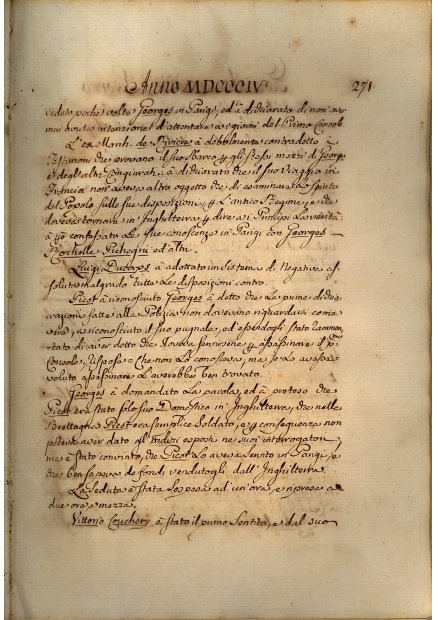 Anno MDCCCIV. 271
veduto poche volte Georges in Parigi, ed à dichiarato di non aver
mai avuto intenzione d'attentare a' giorni del Primo Console
L'ex March. de Riviere à debolmente contradetto a'
Testimonj che provano il suo sbarco, e gli stessi mezzi di Georg:
e degli altri Congiurati: à dichiarato che il suo viaggio in
Francia non aveva altro oggetto che di esaminare lo spirito
del Popolo sulle sue disposizioni per L'antico Regime, e che
doveva tornare in Inghilterra per dire a' Principi La verità:
à poi confessato Le sue conoscenze in Parigi con Georges
Rochelle Pichegru ed altri.
Luigi Ducorps à adottato un sistema di Negativa as-
soluta malgrado tutte Le disposizioni contro.
Picot à riconosciuto Georges à detto che Le prime dichia-
razioni fatte alla Polizia non dovevano riguardarsi come
vere; à riconosciuto il suo pugnale, ed essendogli stato rammen-
tato di aver detto che doveva servirsene per assassinare il P.mo
Console, rispose = Che non Lo conosceva, ma se Lo avesse
voluto assassinare L'averebbe ben trovato.
Georges à domandato La parola, ed à preteso che
Picot era stato solo suo Domestico in Inghilterra, che nelle
Brettagna Picot era semplice Soldato, e per conseguenza non
poteva aver dato gl'Indizj esposti ne' suoi interrogatorj,
ma è stato convinto, che Picot Lo aveva servito in Parigi, e
che ben sapeva de' fondi vendutogli dall'Inghilterra.
La seduta è stata sospesa ad un'ora, e ripresa a
due ore e mezza.
Vittorio Couchery è stato il primo sentito, e dal suo